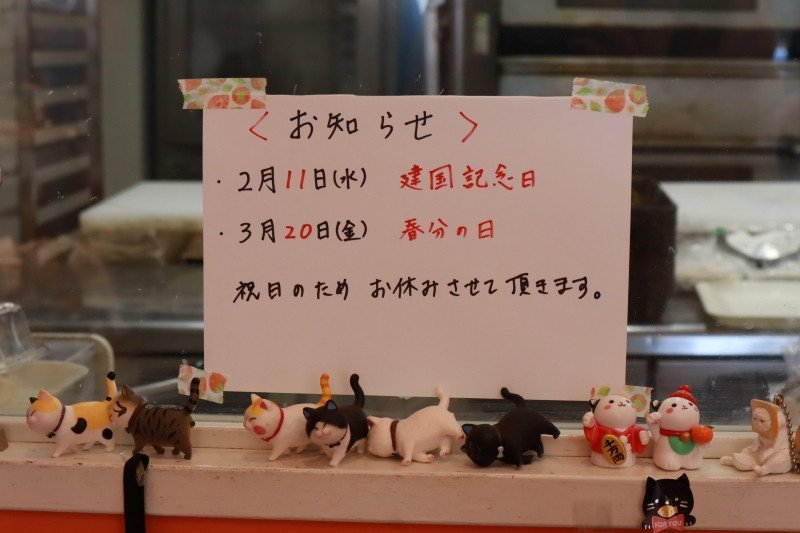 〈 お知らせ 〉
・2月11日(水) 建国記念日
・3月20日(金) 春分の日
祝日のため お休みさせて頂きます。
十万両
FOR YOU